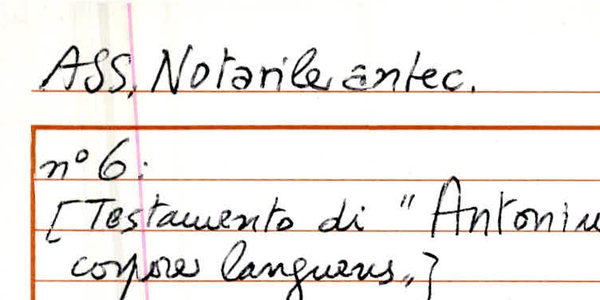 ASS. Notarile antec.
n° 6:
[Testamento di " Antoniu
corpore languens„]